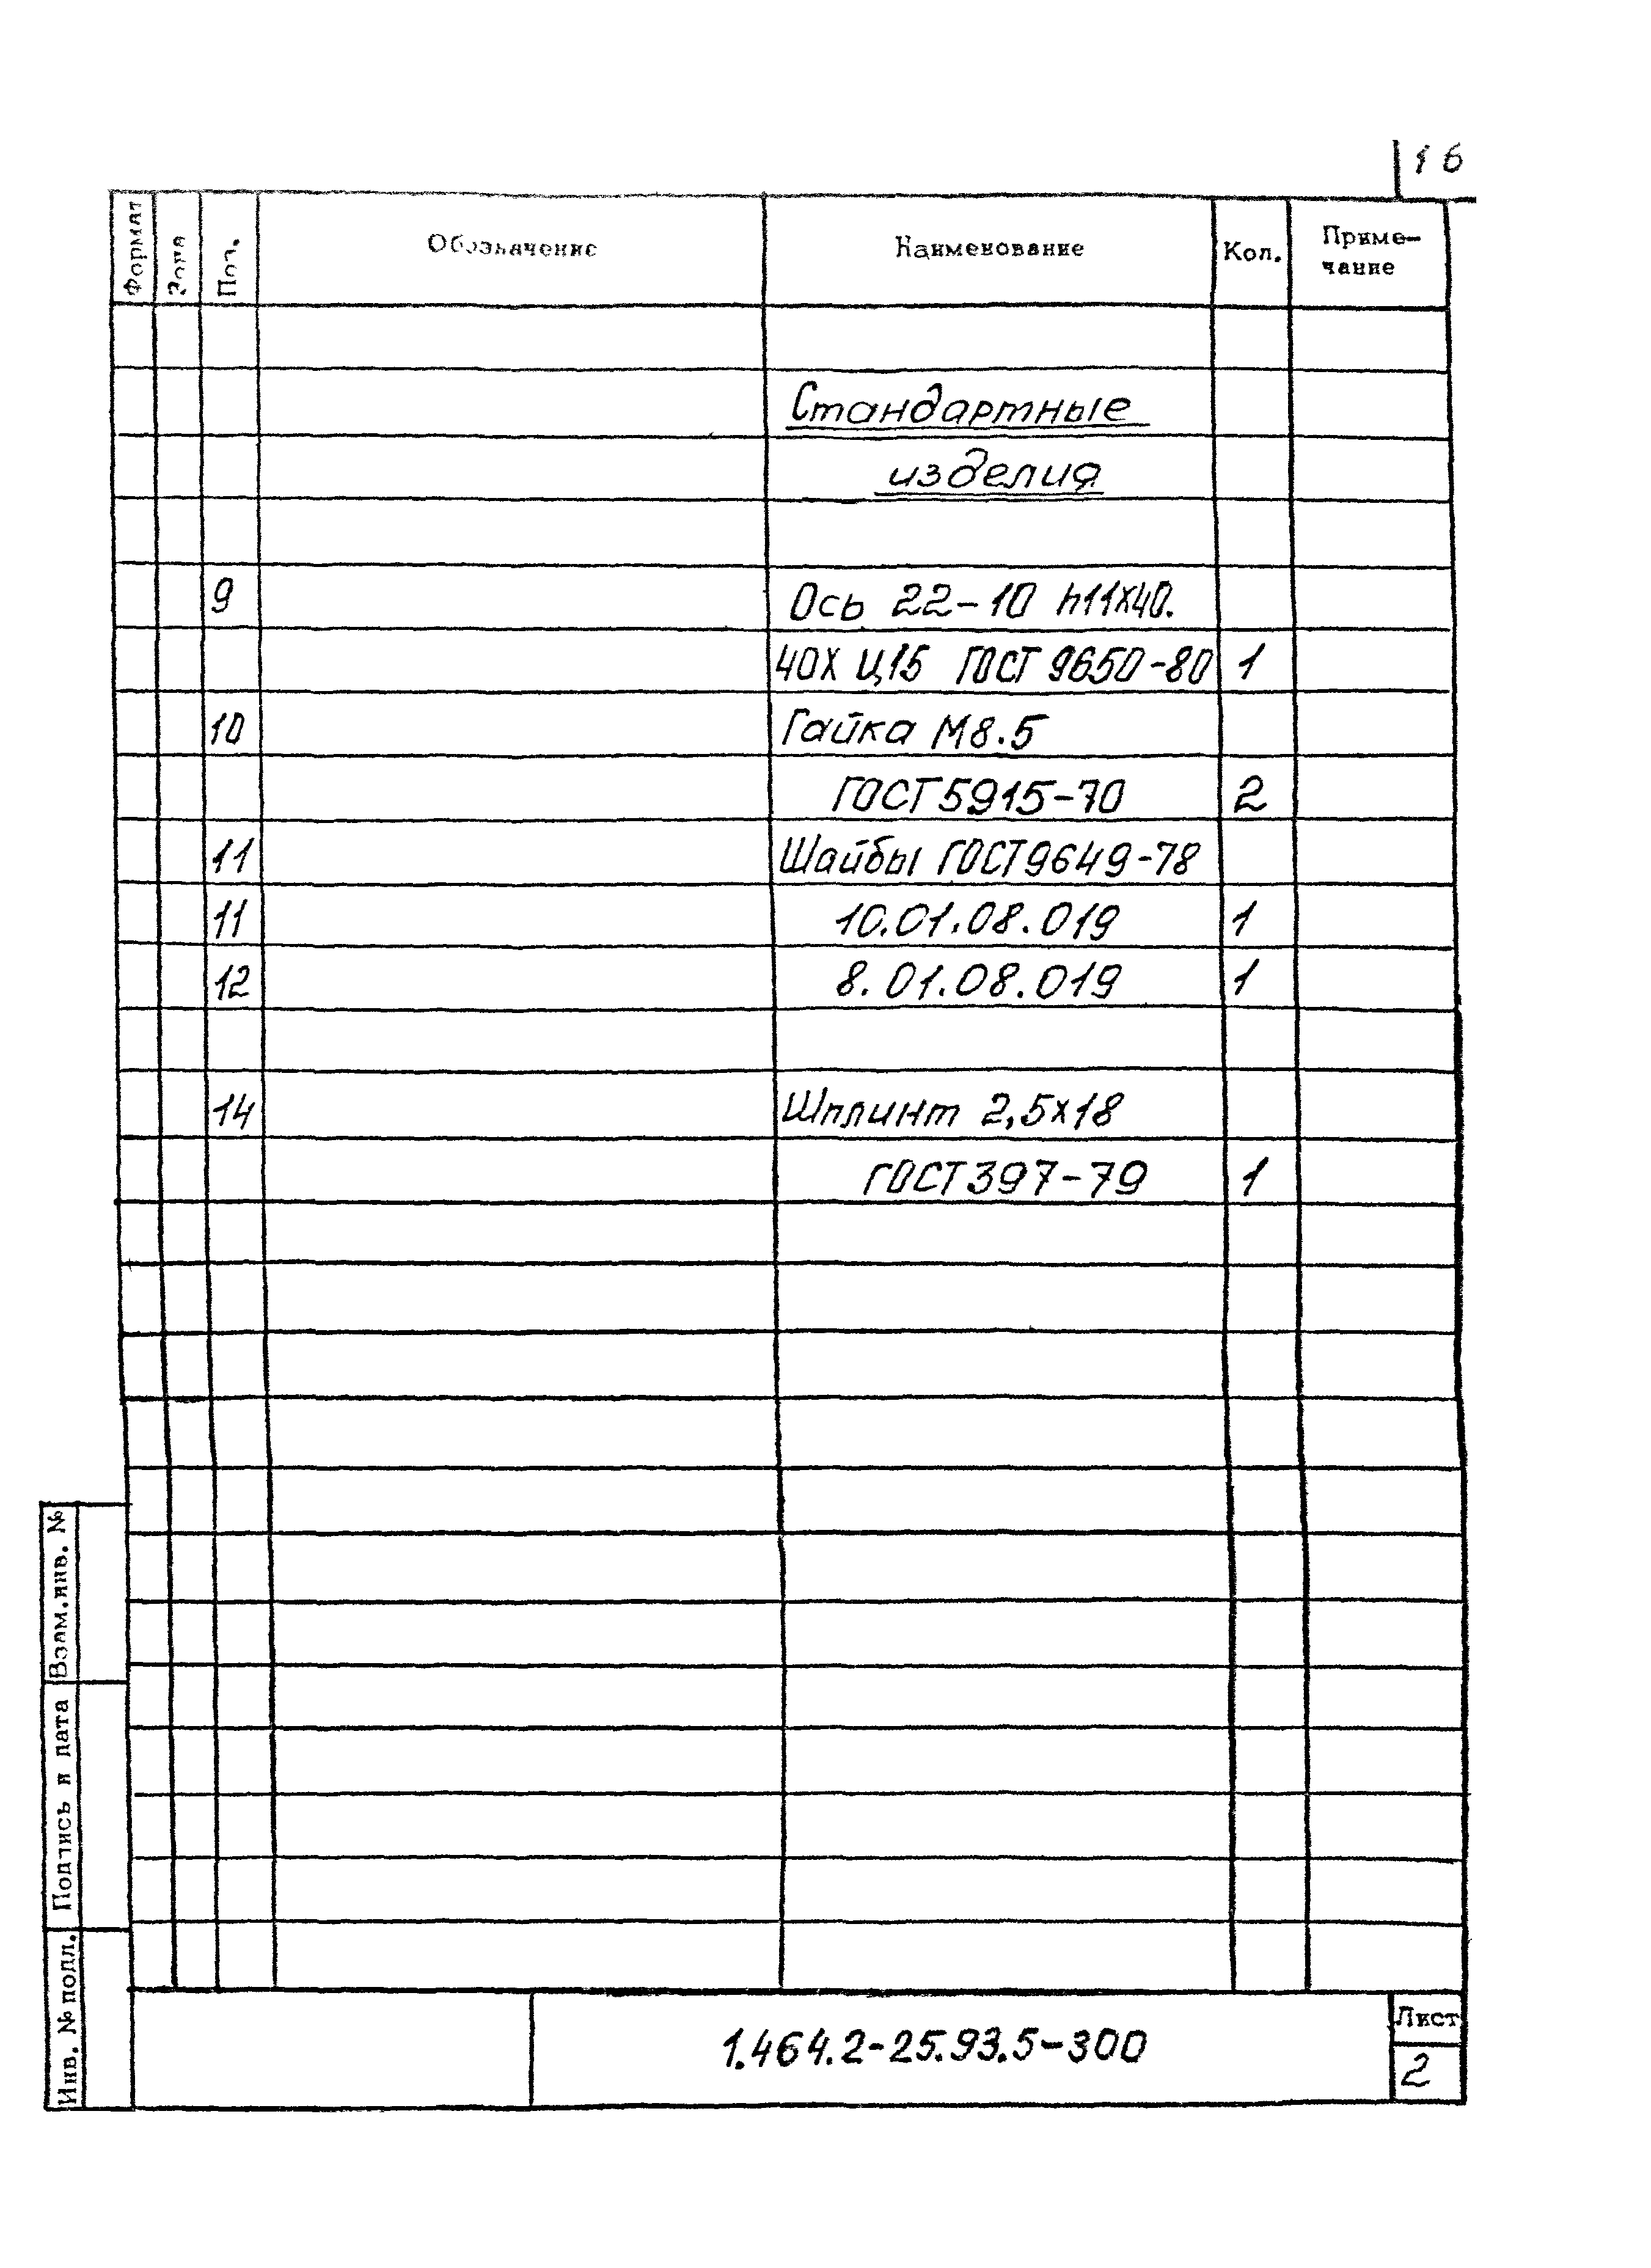 16
Формат
Зона
Поз.
Обозначение
Наименование
Кол.
Приме-
чание
Стандартные
изделия
9 Ось 22-10 h11х40.
40Х Ц15 ГОСТ 9650-80 1
10 Гайка М8.5
ГОСТ 5915-70 2
11 Шайбы ГОСТ 9649-78
11 10.01.08.019 1
12 8.01.08.019 1
14 Шплинт 2,5х18
ГОСТ 397-79 1
Взам.инв. №
Подпись и дата
Инв. № подл.
1.464.2-25.93.5-300
Лист
2